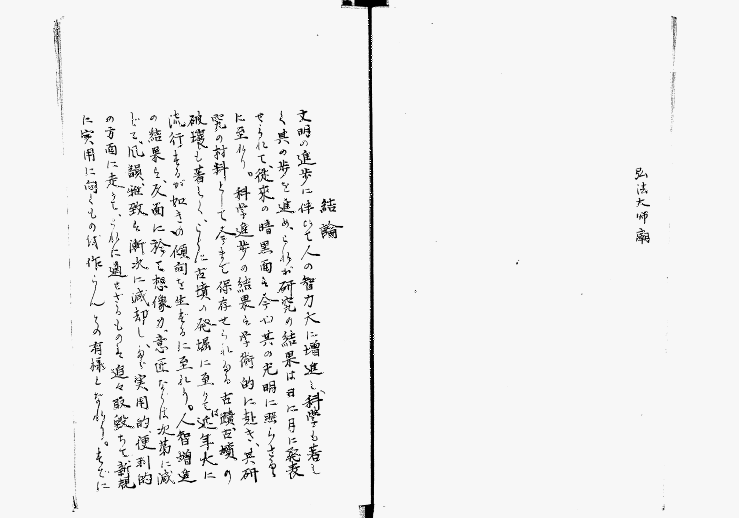 弘法大師廟
結論
文明の進歩に伴いて人の智力大に増進し、科学も著し
く其の歩を進め、られが研究の結果は日に月に発表
せられて、従来の暗黒面も今や其の光明に照らさる
に至れり。科学進歩の結果は学術的に赴き、其研
究の材料として今まで保存せられたる古蹟古墳の
破壊も著しく、ことに古墳の発掘に至りては近年大に
流行するが如きの傾向を生ずるに至れり。人智増進
の結果は、反面に於て想像力、意匠などは次第に減
じて、風韻、雅致は漸次に減却し、実用的、便利的
の方面に走りて、これに適せざるものは追々取毀ちて新規
に実用に向くものを作らんとの有様となれり。すでに